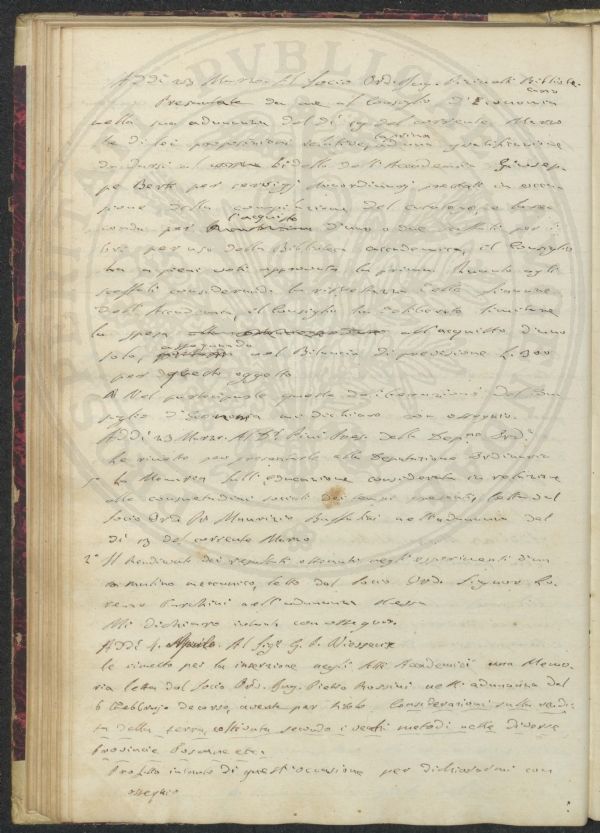 Addì 23 Marzo. Al Socio Ord. Aug. Bibliote-
cario
Presentate da me al Consiglio d'Economia
nella sua adunanza del dì 19 del corrente Marzo
le di lei proposizioni relative ad una gratificazione
da darsi al bidello dell'Accademia Giusep-
pe Berti per servigj straordinarj prestati in occa-
sione della compilazione del catalogo, e la se-
conda per l'acquisto d'uno o due scaffali per i li-
bri per uso della Biblioteca accademica, il Consiglio
ha a pieni voti approvata la prima. Quanto agli
scaffali considerando la ristrettezza delle finanze
dell'Accademia, il Consiglio ha deliberato limitare
la spesa all'acquisto d'uno
solo, assegnando nel Bilancio di previsione L. 300
per questo oggetto.
Nel parteciparle queste deliberazioni del Con-
siglio d'Economia mi dichiaro con ossequio.
Addì 23 Marzo. Al Sig. Pini Pres. della Depne Ord.
Le rimetto per presentarle alla Deputazione Ordinaria
1° La Memoria sull'educazione considerata in relazione
alle consuetudini sociali dei tempi presenti, letta dal
Socio Ord. Maurizio Bufalini nell'adunanza del
dì 13 del corrente Marzo
2° Il Rendiconto dei resultati ottenuti negli esperimenti d'un
mulino meccanico, letto dal Socio Ord. Signore Lo-
renzo nell'adunanza stessa
Mi dichiaro intanto con ossequio.
Addì 4. Aprile. Al Sigr G. P. Vieusseux
Le rimetto per la inserzione negli Atti Accademici una Memo-
ria letta dal Socio Ord. Aug. Pietro Rossini nell'adunanza del
6 Febbrajo decorso, avente per titolo, Considerazioni sulla rendi-
ta della terra, coltivata secondo i vecchi metodi nelle diverse
Provincie Toscane ecc.
Profitto intanto di quest'occasione per dichiararmi con
ossequio